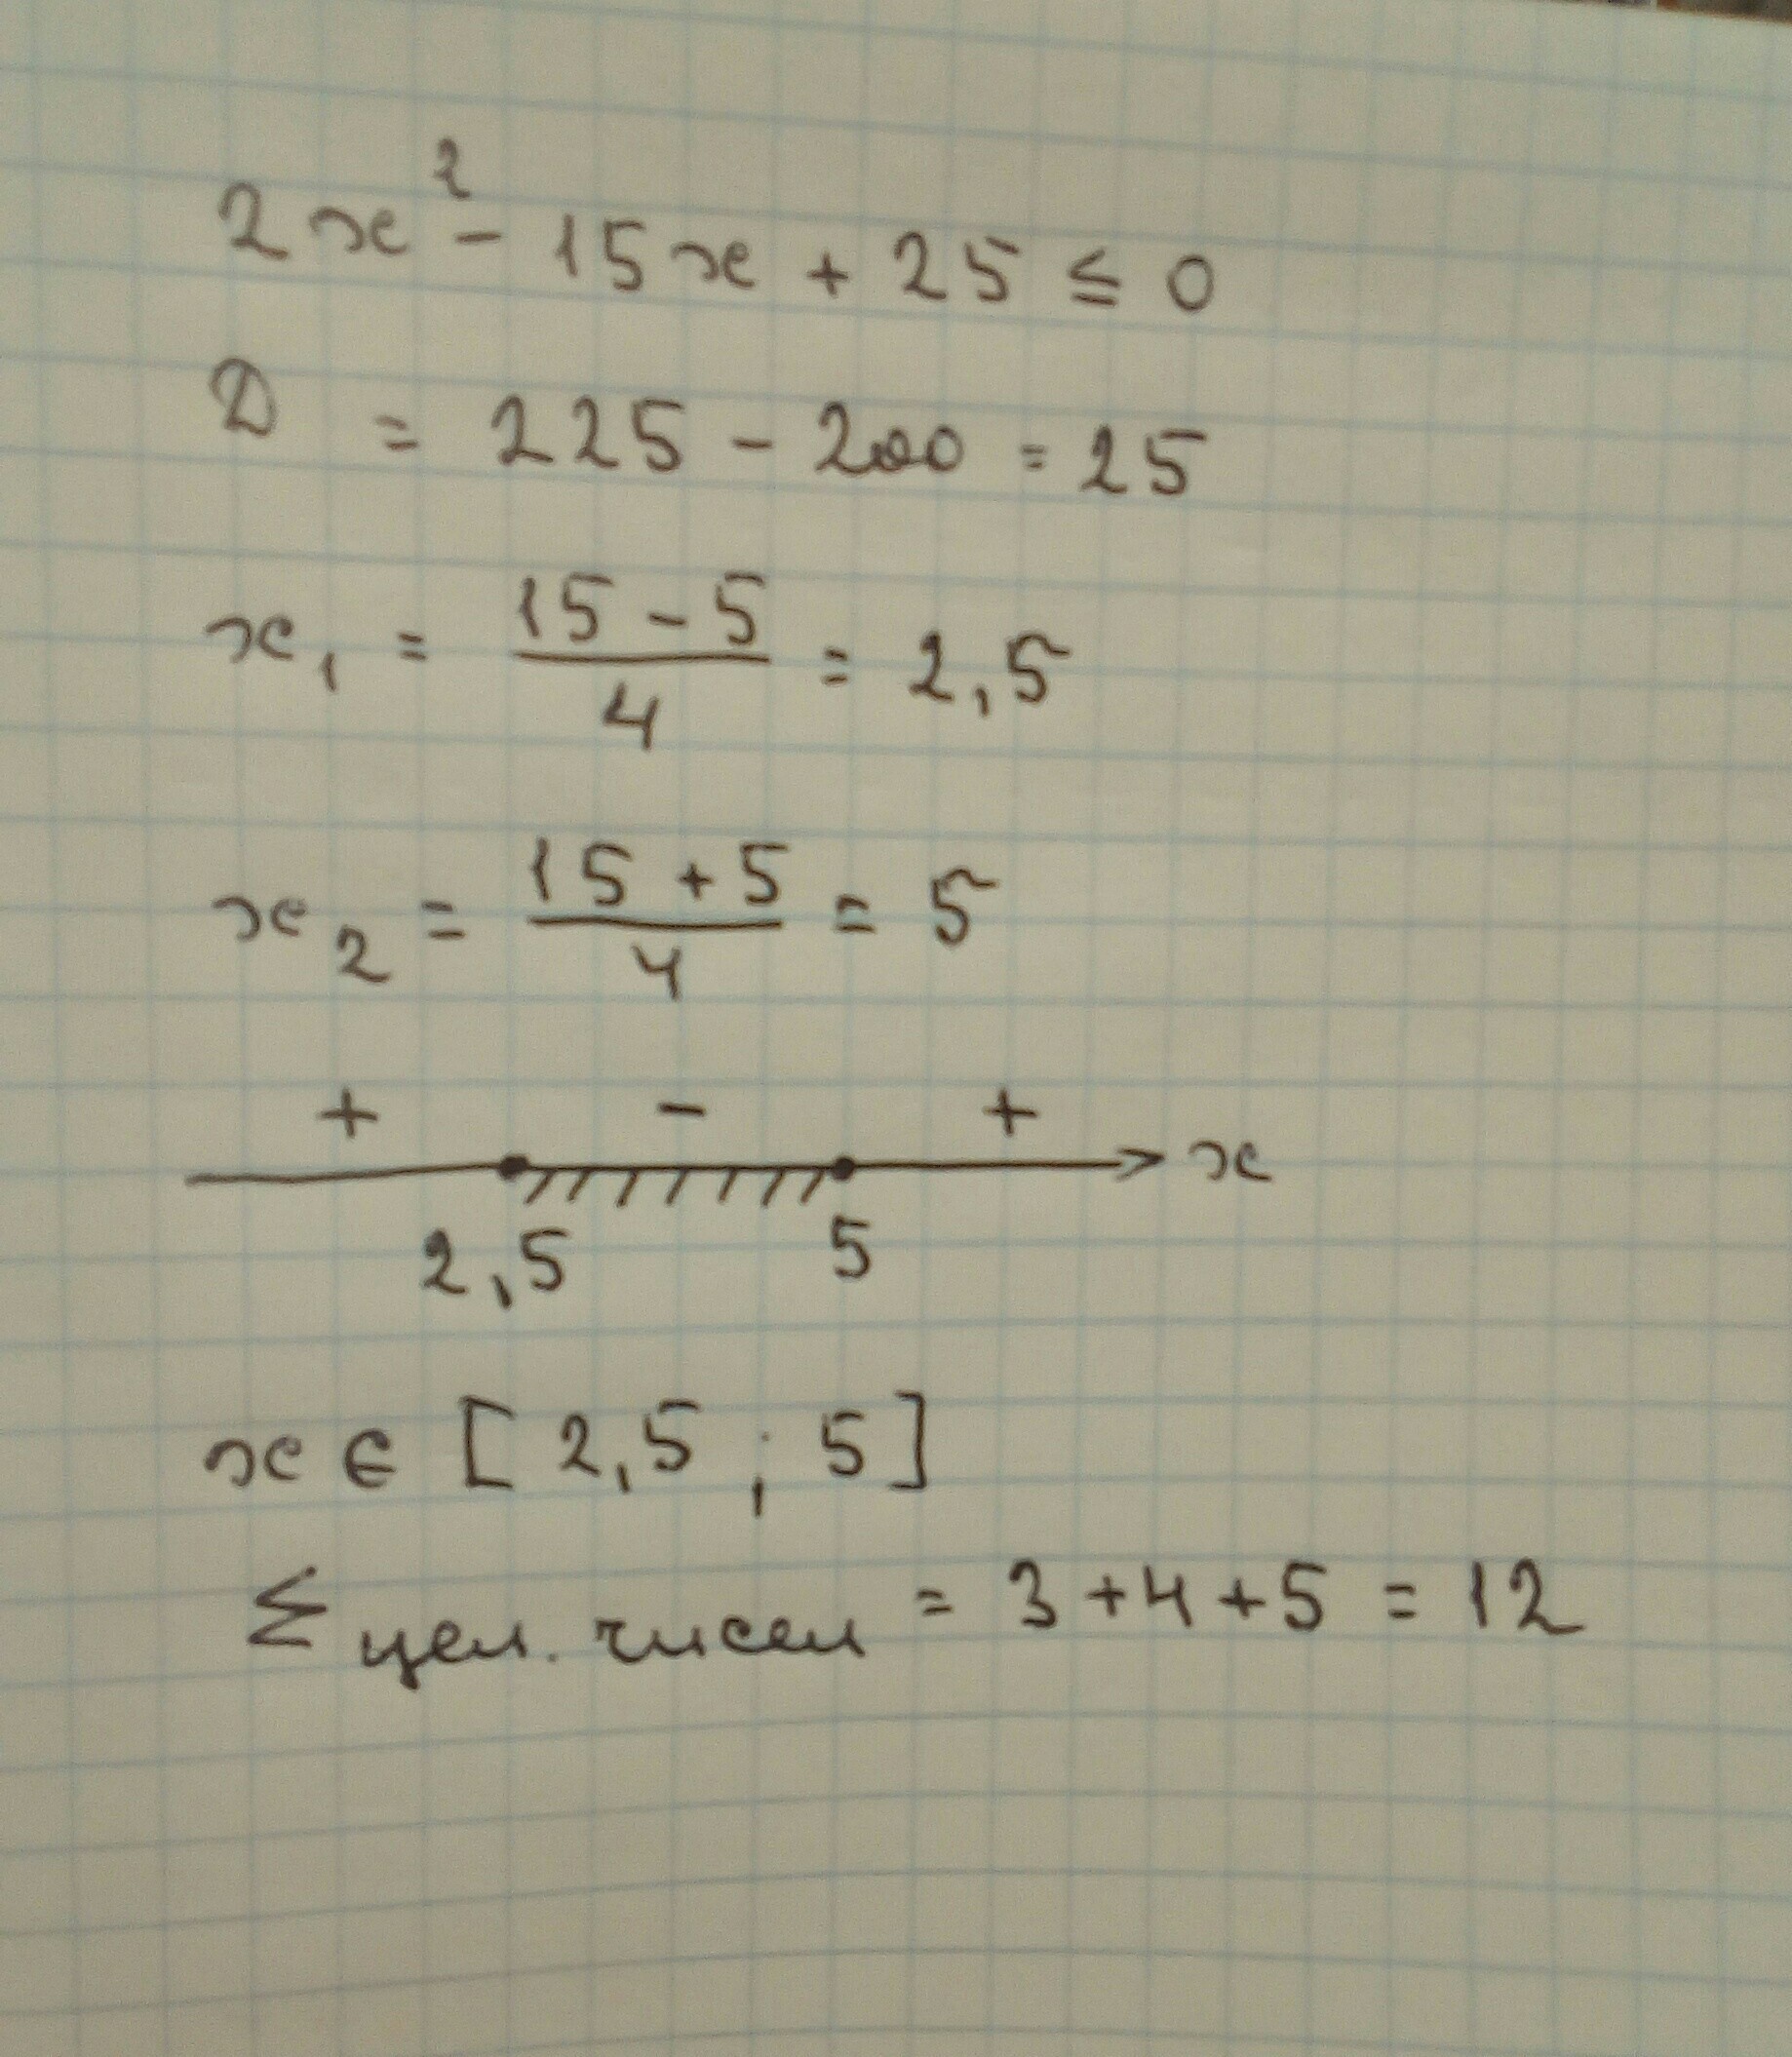 2x² - 15x + 25 ≤ 0
D = 225 - 200 = 25
x₁ = (15 - 5)/4 = 2,5
x₂ = (15 + 5)/4 = 5
+ - + x
2,5 5
x ∈ [2,5 ; 5]
Σ цел. чисел = 3 + 4 + 5 = 12